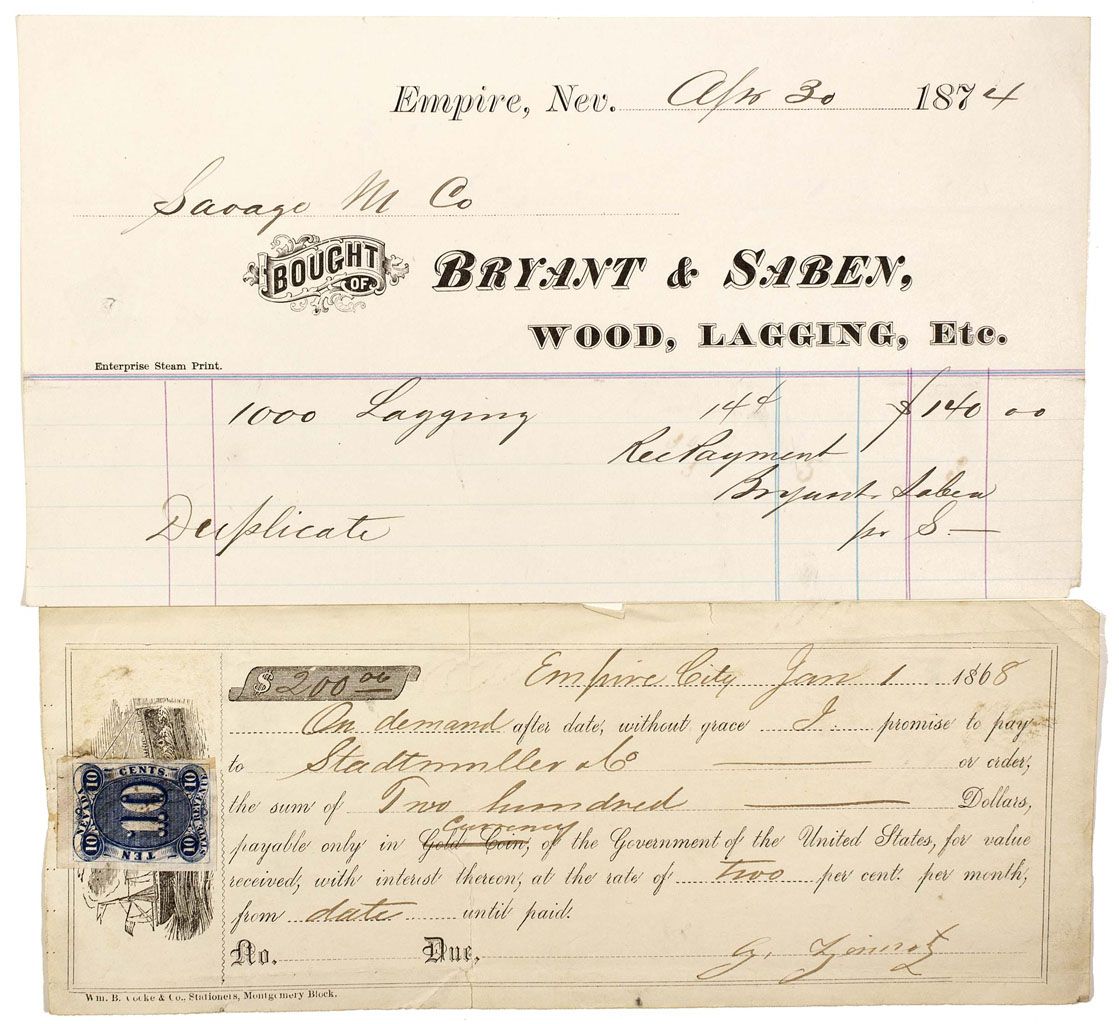 Empire, Nev. Apr 30 1874
Savage M Co
BOUGHT OF BRYANT & SABEN,
WOOD, LAGGING, Etc.
Enterprise Steam Print.
1000 Lagging 14¢ $140 00
Rec Payment
Bryant & Saben
Duplicate pr S —
$ 200 00 Empire City Jan 1 1868
On demand after date, without grace I promise to pay
to Stadtmuller & Co or order,
the sum of Two hundred Dollars,
Currency
payable only in Gold Coin, of the Government of the United States, for value
received, with interest thereon, at the rate of two per cent. per month,
from date until paid.
No. Due, G.
Wm. B. Cooke & Co., Stationers, Montgomery Block.
10 CENTS. 10
NEVADA 10 REVENUE
10 TEN 10